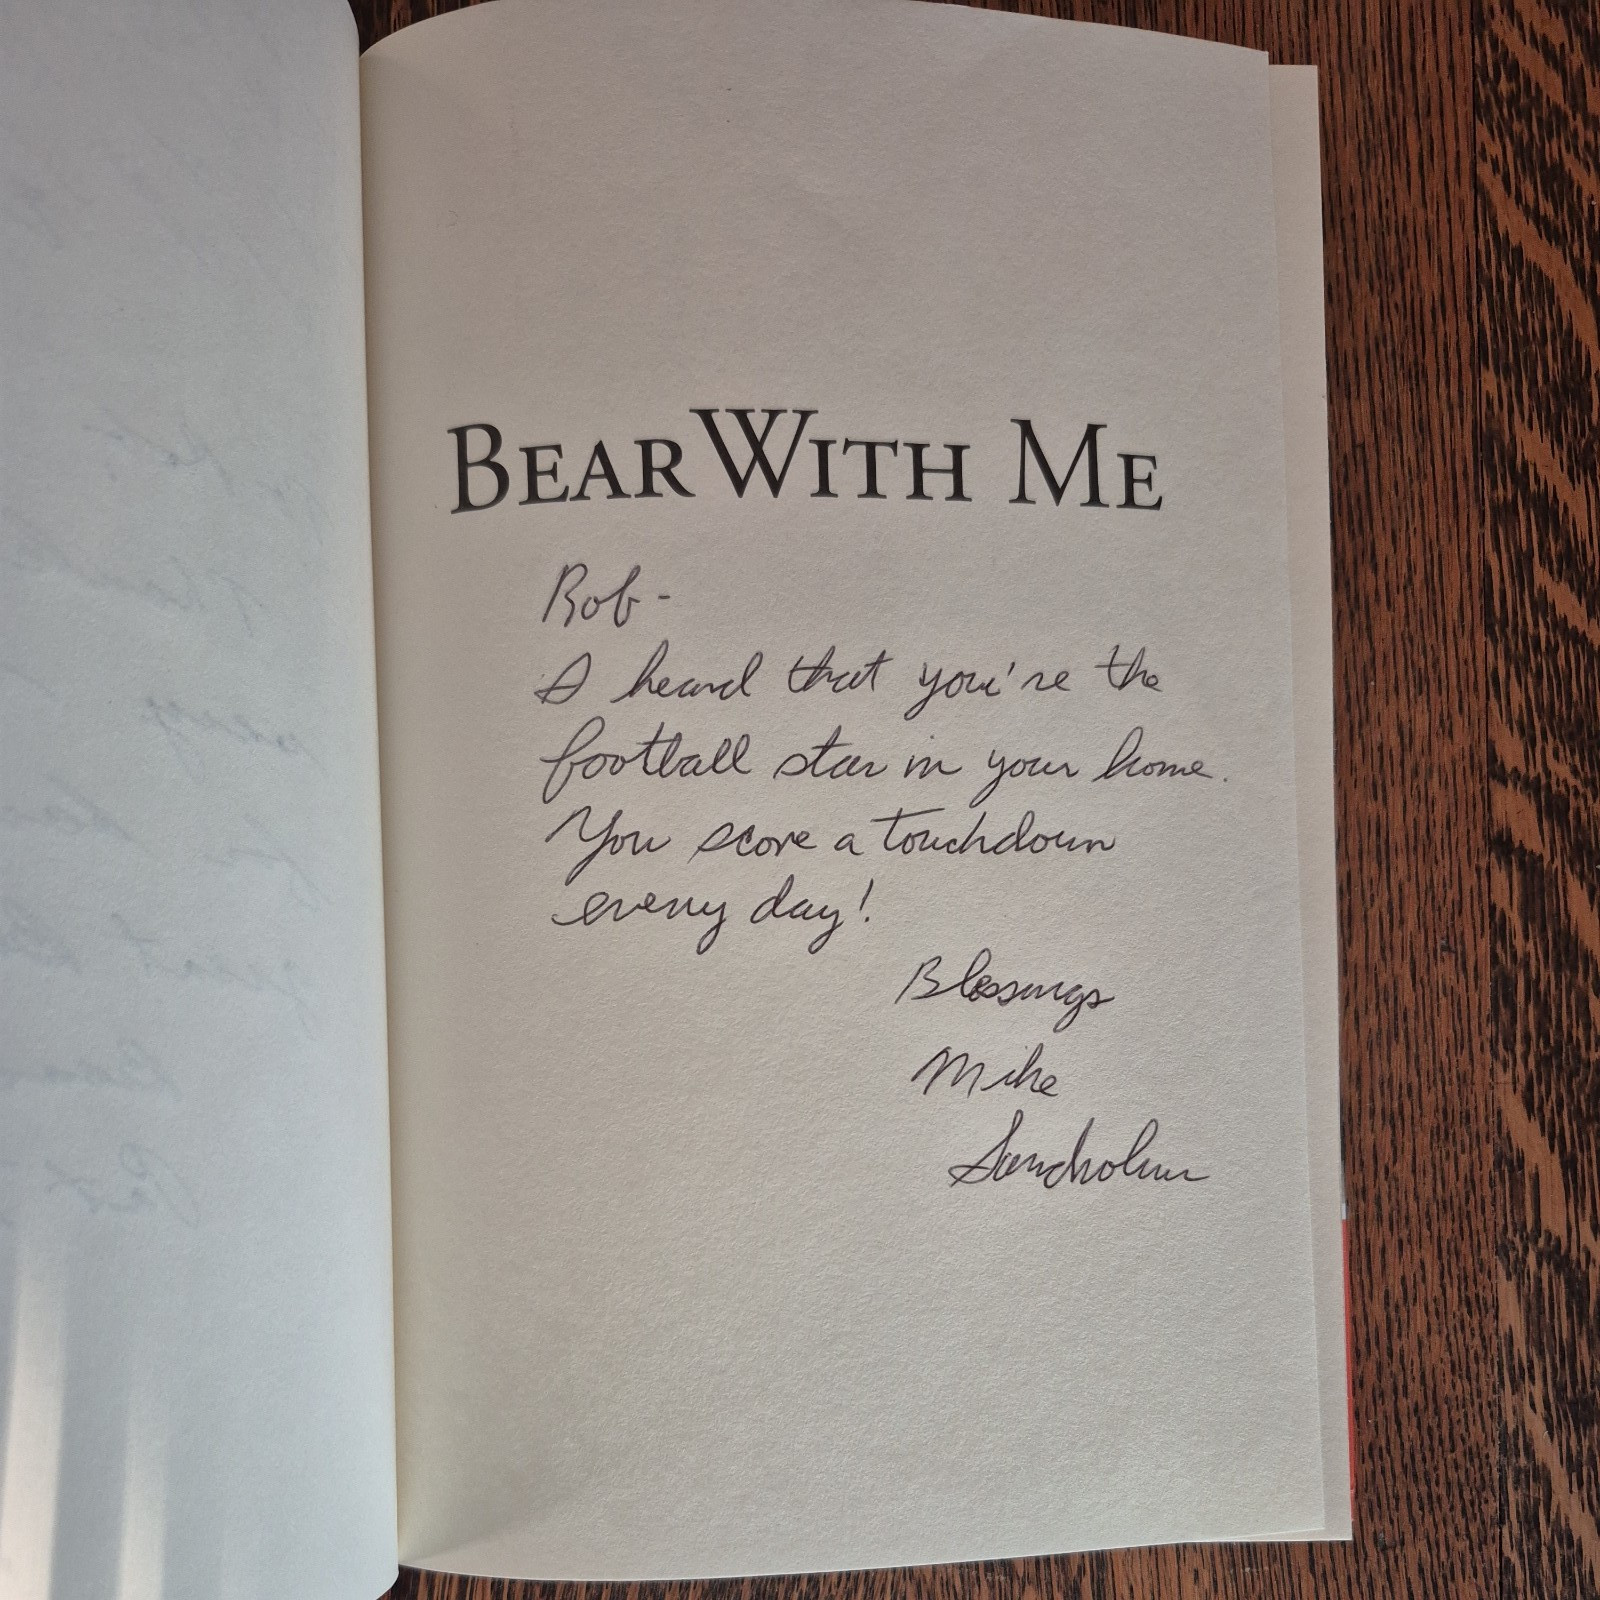 BEAR WITH ME
Rob-
I heard that you're the
football star in your home.
You score a touchdown
every day!
Blessings
Mike
Sandholm